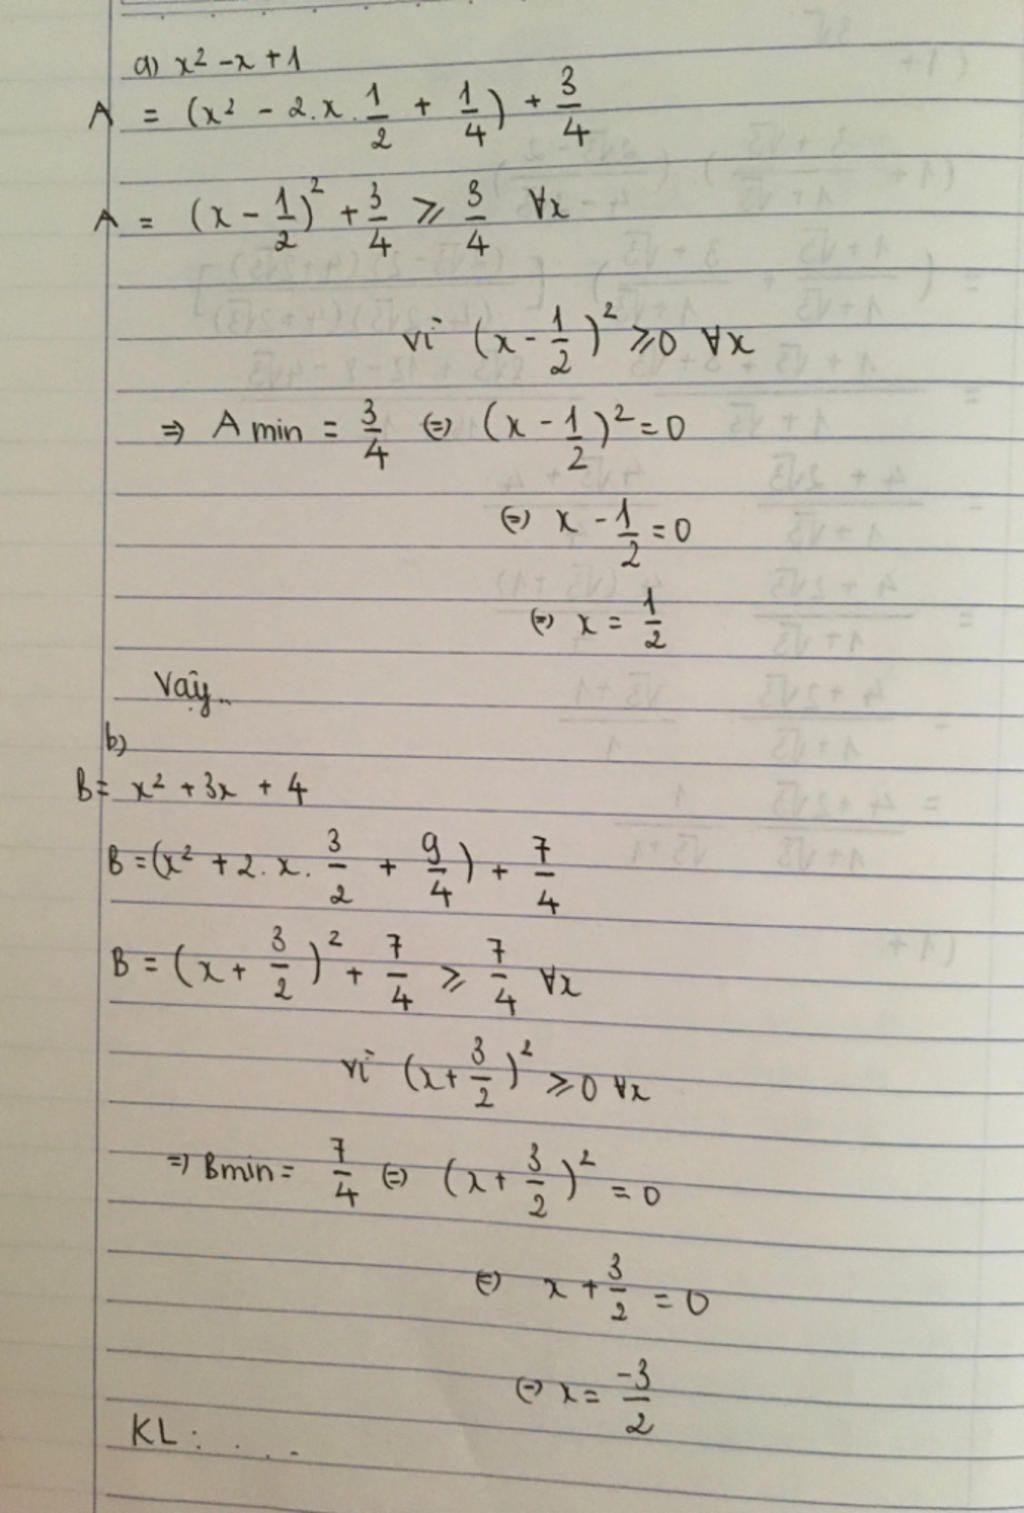 a) x² - x + 1
A = (x² - 2.x.1/2 + 1/4) + 3/4
A = (x - 1/2)² + 3/4 ⩾ 3/4 ∀x
vì (x - 1/2)² ⩾ 0 ∀x
⇒ A min = 3/4 (=) (x - 1/2)² = 0
(=) x - 1/2 = 0
(=) x = 1/2
Vậy..
b)
B = x² + 3x + 4
B = (x² + 2.x.3/2 + 9/4) + 7/4
B = (x + 3/2)² + 7/4 ⩾ 7/4 ∀x
vì (x + 3/2)² ⩾ 0 ∀x
=) Bmin = 7/4 (=) (x + 3/2)² = 0
(=) x + 3/2 = 0
(=) x = -3/2
KL: . . . .